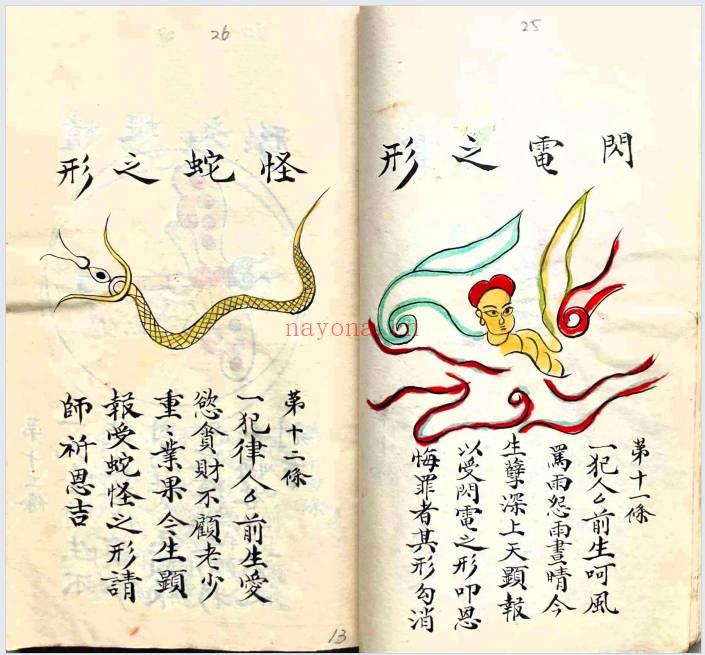 25
閃電之形
第十一條
一犯人厶前生呵風
罵雨怨雨晝晴今
生孽深上天顕報
以受閃電之形叩恩
悔罪者其形勾消
26
怪蛇之形
第十二條
一犯律人厶前生愛
慾貪財不顧老少
重〻業果今生顕
報受蛇怪之形請
師祈恩吉
13
nayona